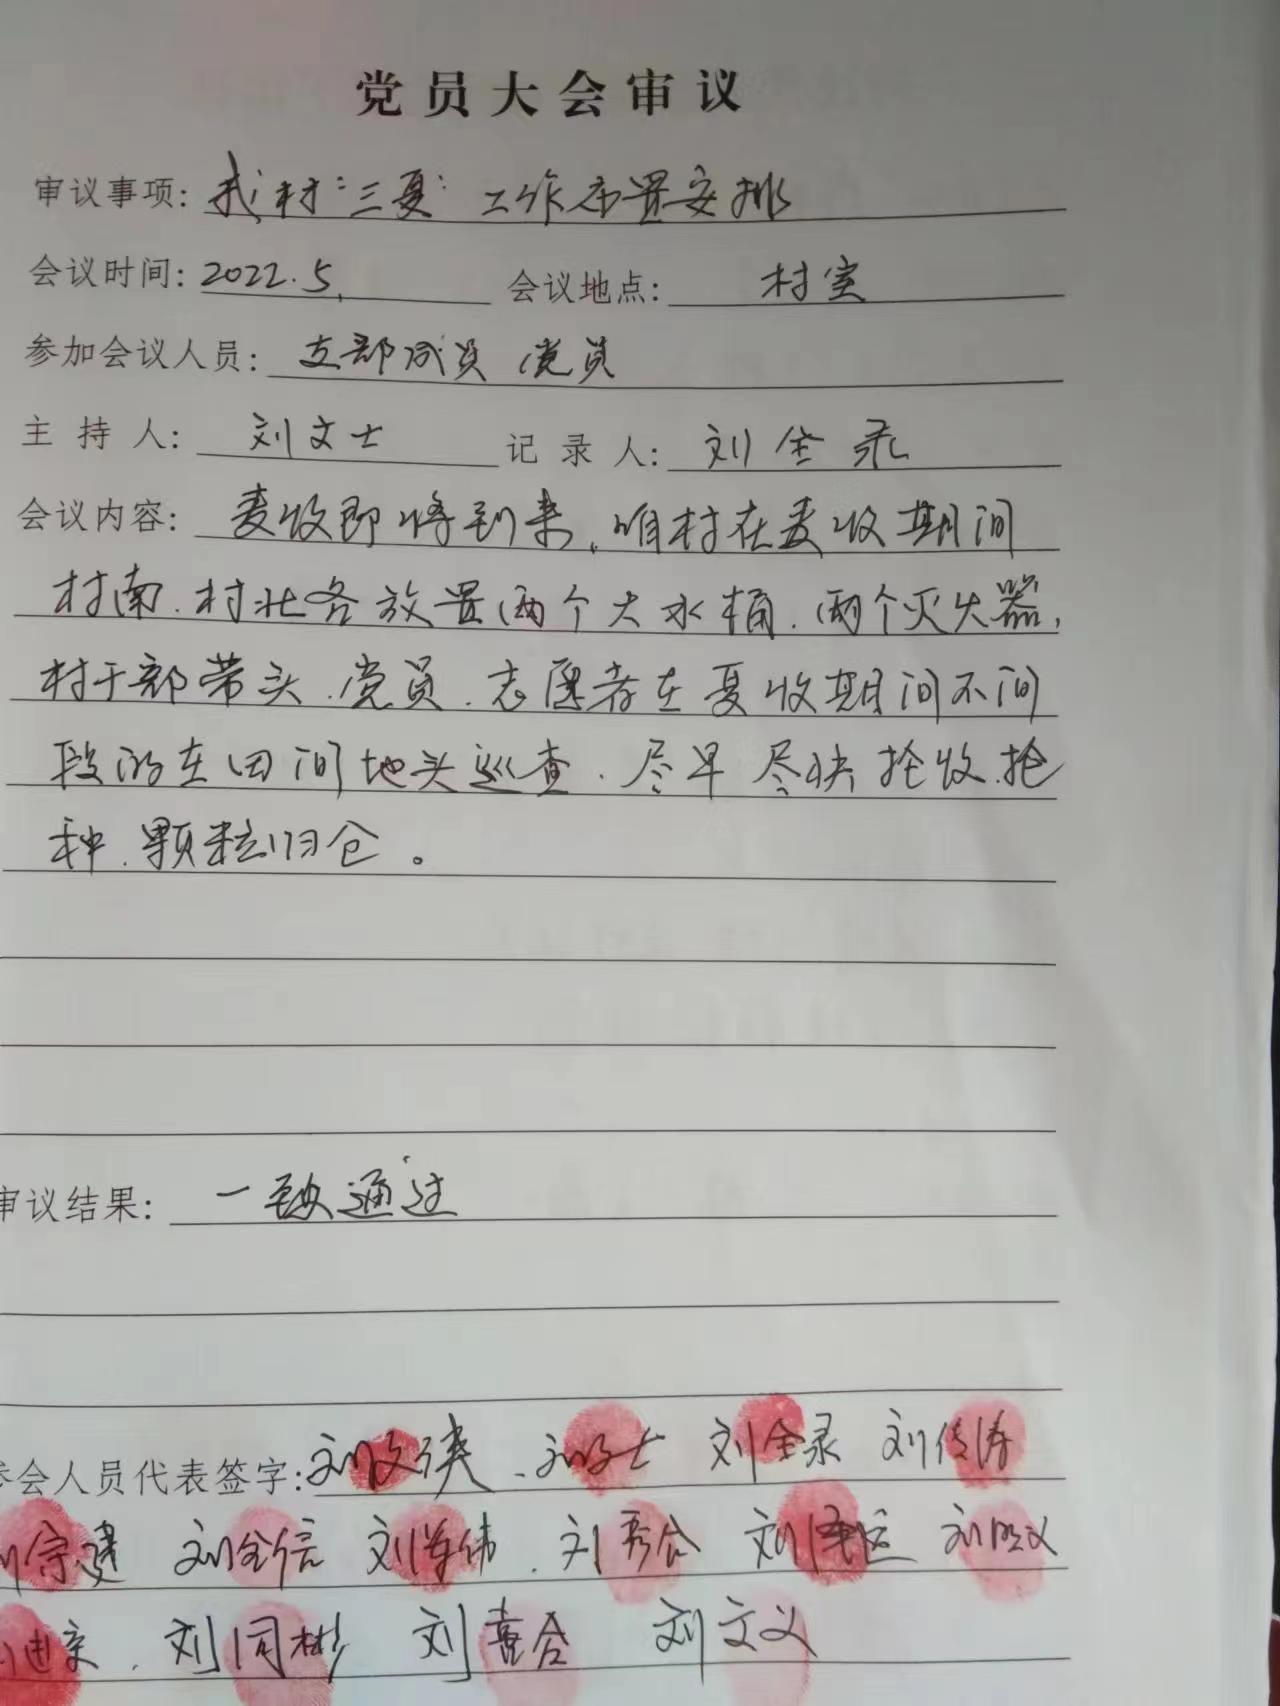 党员大会审议
审议事项: 我村"三夏"工作布置安排
会议时间: 2022.5. 会议地点: 村室
参加会议人员: 支部成员 党员
主持人: 刘文士 记录人: 刘全录
会议内容: 麦收即将到来,咱村在麦收期间
村南、村北各放置两个大水桶、两个灭火器,
村干部带头、党员、志愿者在夏收期间不间
段的在田间地头巡查、尽早尽快抢收、抢
种、颗粒归仓。
审议结果: 一致通过
参会人员代表签字: 刘文士 刘全录 刘传涛
刘宗建 刘全信 刘军伟、刘秀合
刘同彬 刘喜合 刘文义